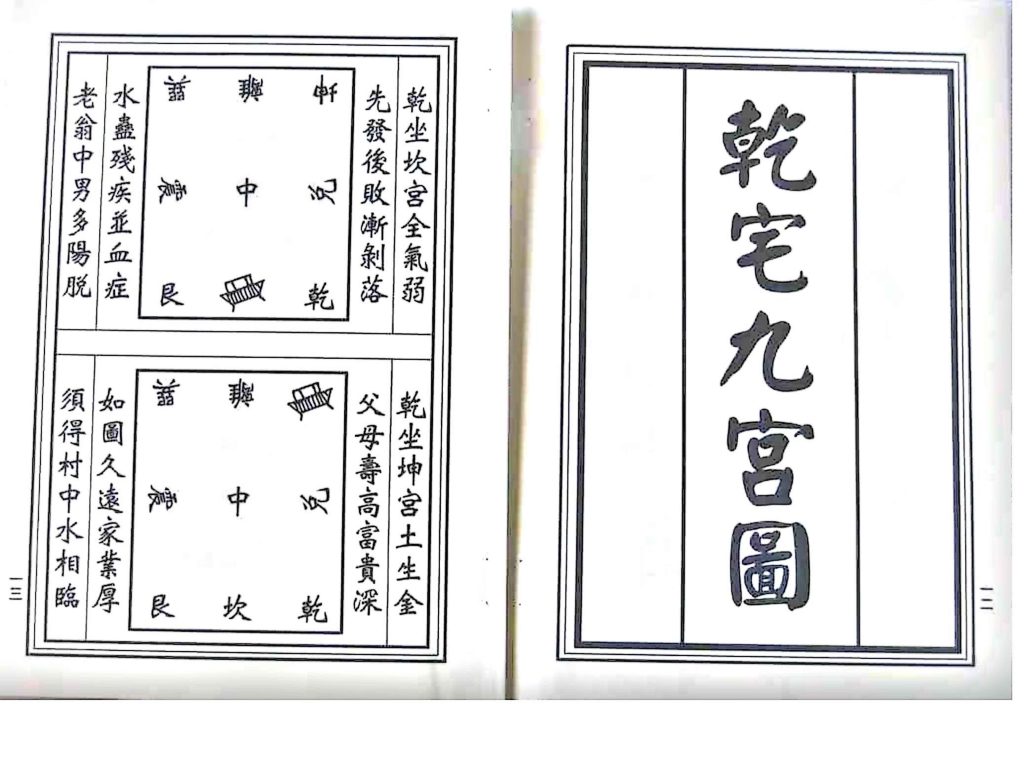 乾宅九宮圖
一二
乾坐坎宮全氣弱
先發後敗漸剝落
巽 離 坤
震 中 兌
艮 乾
水蠱殘疾並血症
老翁中男多陽脫
乾坐坤宮土生金
父母壽高富貴深
巽 離
震 中 兌
艮 坎 乾
如圖久遠家業厚
須得村中水相臨
一三